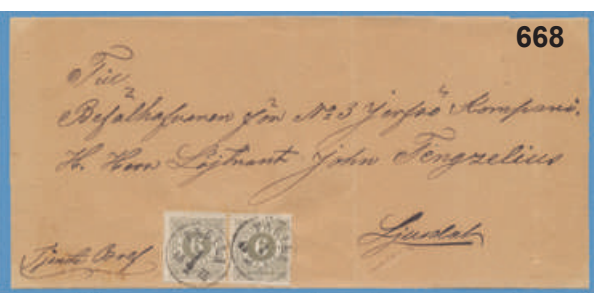 668
Till
Befälhafvaren för No 3 Jerfsö Kompani.
H. Herr Löjtnant John Tengzelius
Ljusdal
Tjenste Bref
6 6